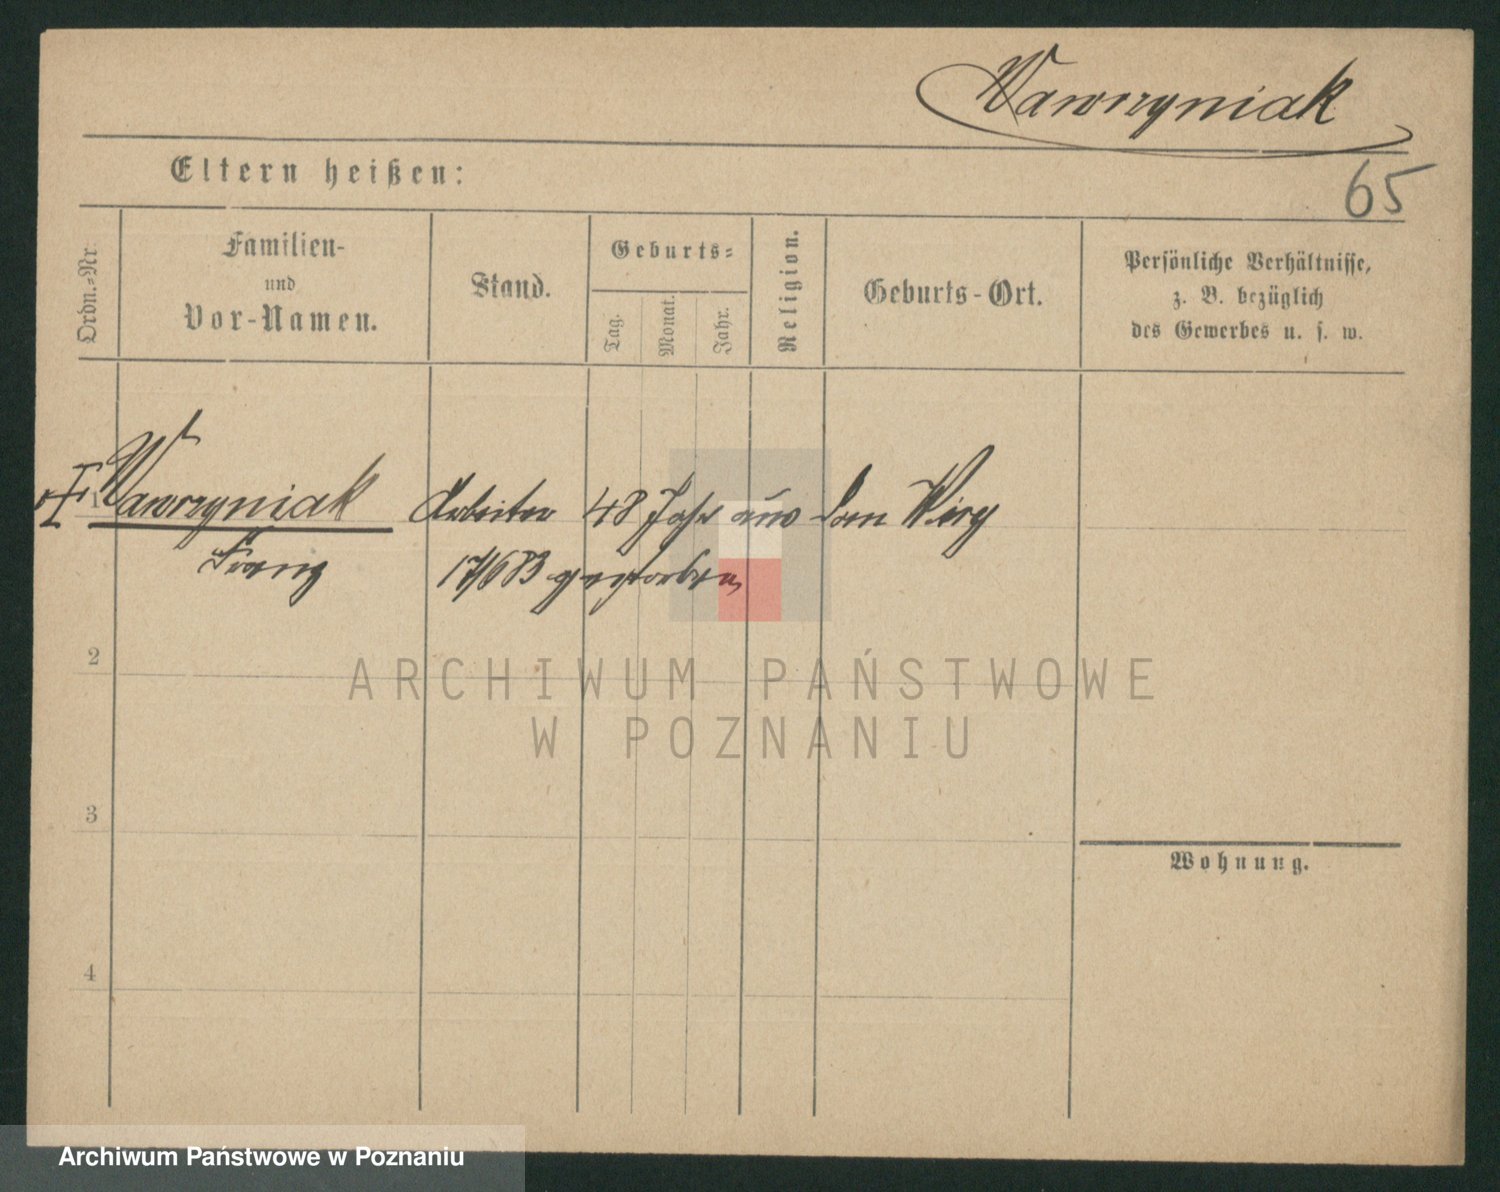 Wawrzyniak
65
Eltern heißen:
Ordn.-Nr.
Familien-
und
Vor-Namen.
Stand.
Geburts-
Tag.
Monat.
Jahr.
Religion.
Geburts-Ort.
Persönliche Verhältnisse,
z. B. bezüglich
des Gewerbes u. s. w.
1 Wawrzyniak Arbeiter 48 Jahr aus
Franz 17/6 83 gestorben
2
3
4
Wohnung.
ARCHIWUM PAŃSTWOWE
W POZNANIU
Archiwum Państwowe w Poznaniu